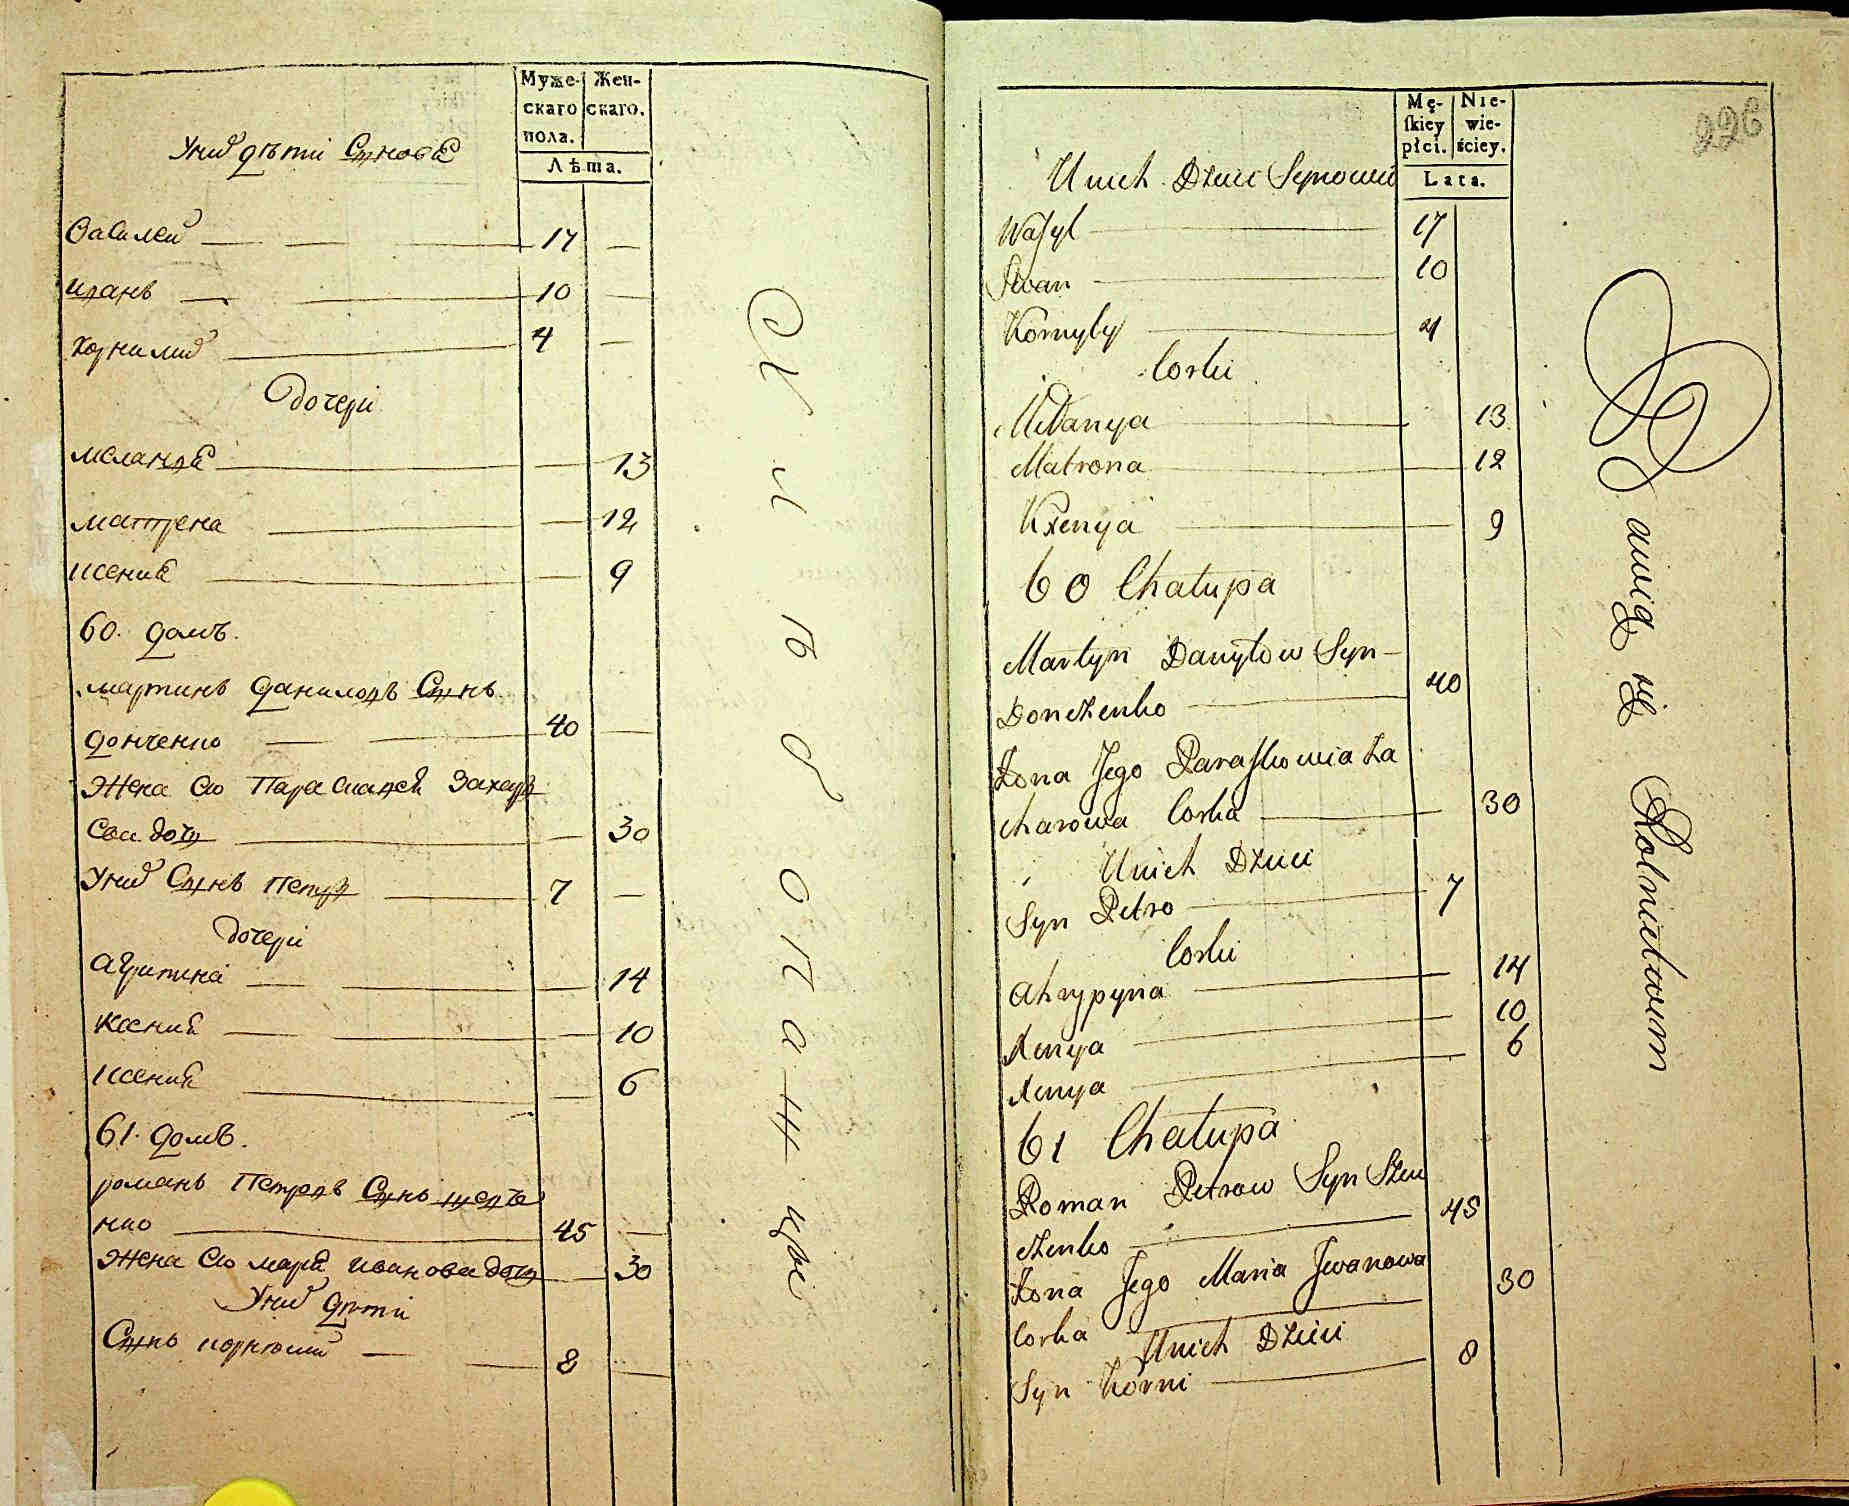 Муже-
скаго
пола.
Жен-
скаго.
Лѣта.
Уних дѣти Сынове
Василей — 17 —
Иванъ — 10 —
Корнилий — 4 —
дочери
Меланія — 13
Матрена — 12
Ксения — 9
60. домъ.
Мартинъ Даниловъ Сынъ
Донченко — 40 —
Жена Єго Параскавея Захаро
ваи дочь — 30
Уних Сынъ Петръ — 7 —
дочери
Агрипина — 14
Ксения — 10
Ксения — 6
61. домъ.
Романъ Петровъ Сынъ Шевче
нко — 45 —
Жена Єго Мария Иванова дочь — 30
Уних дѣти
Сынъ Корнюший — 8 —
Хлѣбопажцы
Mę-
ſkiey
płci.
Nie-
wie-
ściey.
Lata.
226
Unich Dzieci Synowie
Waſyl — 17
Iwan — 10
Kornyly — 4
Corki
Melanya — 13
Matrona — 12
Kxenya — 9
60 Chałupa
Martyn Danyłow Syn —
Donczenko — 40
Żona Jego Paraſkowia Za
charowa Corka — 30
Unich Dzieci
Syn Petro — 7
Corki
Ahrypyna — 14
Xenya — 10
Xenya — 6
61 Chałupa
Roman Petrow Syn Szew
czenko — 45
Żona Jego Maria Jwanowa — 30
Corka
Unich Dzieci
Syn Korni — 8
Bawią się Rolnictwem